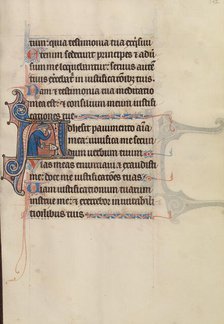 tuum: quia testimonia tua exqsiui
Etenim sederunt principes & adu
sum me loquebantur: seruus autem
tuus exercebatur in iustificationib; tuis
Nam & testimonia tua meditatio
mea est: & consilium meum iustifi
cationes tue
Adhesit pauimento aīa
mea: uiuifica me secun
dum uerbum tuum
Uias meas enuntiaui & exaudisti
me: doce me iustificatiões tuas
Uiam iustificationum tuarum
instrue me: & exercebor in mirabi
libus tuis